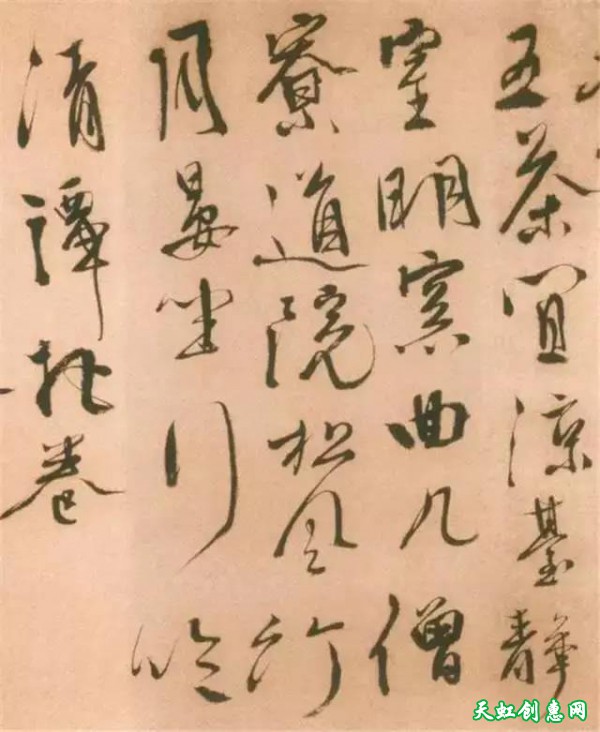 五茶宜涼臺靜
室明窗曲几僧
寮道院松風竹
月晏坐行吟
清譚把卷
天虹创惠网